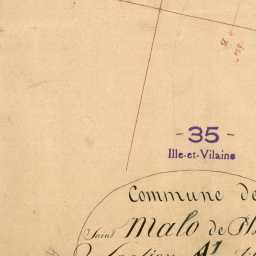 - 35 -
Ille-et-Vilaine
Commune de
Saint Malo de Ph
Section A1